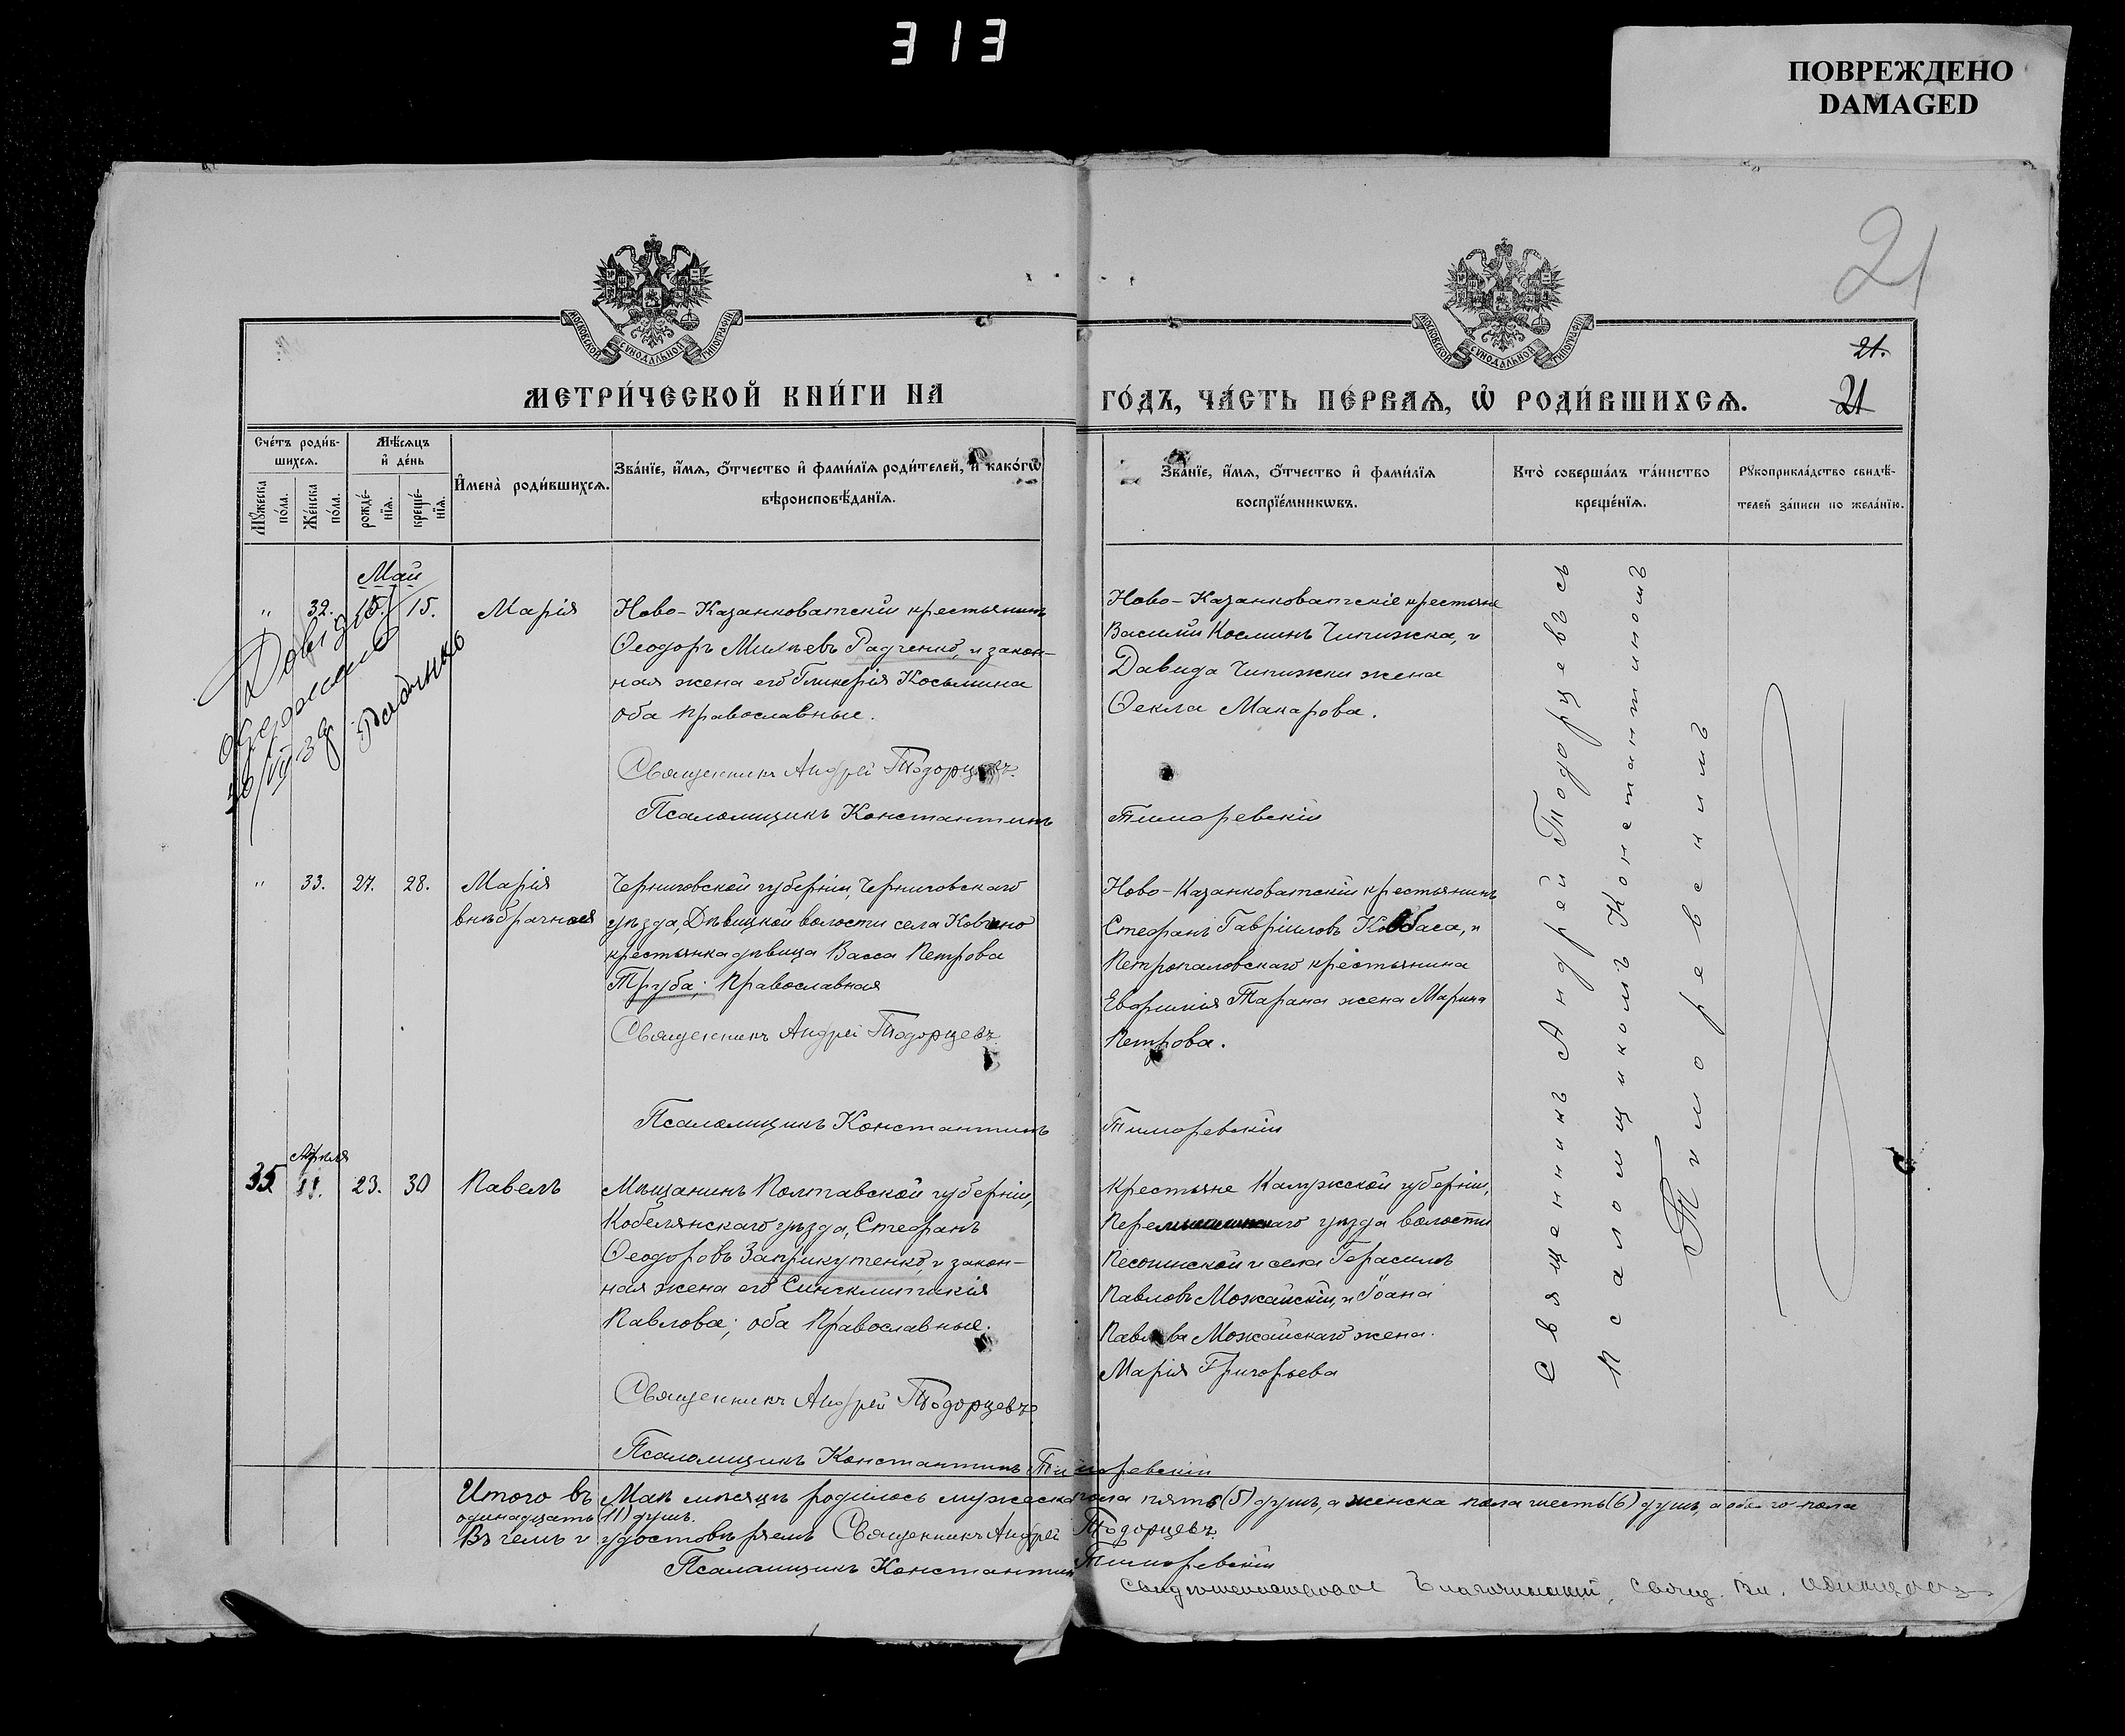 313
ПОВРЕЖДЕНО
DAMAGED
21
21.
21
МОСКОВСКОЙ СѴНОДАЛЬНОЙ ТИПОГРАФІИ
МОСКОВСКОЙ СѴНОДАЛЬНОЙ ТИПОГРАФІИ
МЕТРИ́ЧЕСКОЙ КНИ́ГИ НА
ГО́ДЪ, ЧА́СТЬ ПЕ́РВАѦ, Ѽ РОДИ́ВШИХСѦ.
Сче́тъ роди́в-
шихсѧ.
Мꙋ́жеска по́ла.
Же́нска по́ла.
Мѣ́сѧцъ
и҆ де́нь
рожде́-
нїѧ.
креще́-
нїѧ.
И҆мена̀ роди́вшихсѧ.
Зва́нїе, и҆́мѧ, ѻ҆́тчество и҆ фами́лїѧ роди́телей, и҆ како́гѡ
вѣроисповѣ́данїѧ.
Зва́нїе, и҆́мѧ, ѻ҆́тчество и҆ фами́лїѧ
воспрїе́мникѡвъ.
Кто̀ соверша́лъ та́инство
креще́нїѧ.
Рꙋкоприкла́дство свидѣ́-
телей за́писи по жела́нїю.
Май
" 32. 15. 15. Марія
Ново-Казанковатскій крестьянинъ
Ѳеодоръ Радченко, и закон-
ная жена его Гликерія Косьмина
оба православные.
Священникъ Андрей Тодорцевъ.
Псаломщикъ Константинъ Тиморевскій
Ново-Казанковатскіе крестьяне
Василій Косминъ Чипижка, и
Давида Чипижки жена
Ѳекла Макарова.
Довідку
одержала
Радченко
" 33. 27. 28. Марія
внѣбрачная
Черниговской губерніи, Черниговскаго
уѣзда, Дѣвицкой волости села Ковчино
крестьянка дѣвица Васса Петрова
Труба; православная
Священникъ Андрей Тодорцевъ.
Псаломщикъ Константинъ Тиморевскій
Ново-Казанковатскій крестьянинъ
Стефанъ Гавріиловъ Ковбаса, и
Петропаловскаго крестьянина
Евфимія Тарана жена Марина
Петрова.
Апрѣля
35 23. 30 Павелъ
Мѣщанинъ Полтавской губерніи,
Кобелянскаго уѣзда, Стефанъ
Ѳеодоровъ Заприкутенко, и закон-
ная жена его Синклитикія
Павлова; оба православные.
Священникъ Андрей Тодорцевъ.
Псаломщикъ Константинъ Тиморевскій
Крестьяне Калужской губерніи,
уѣзда волости
и села Герасимъ
Павловъ Можайскій, и Іоана
Павлова Можайскаго жена
Марія Григорьева
Священникъ Андрей Тодорцевъ съ
Псаломщикомъ Константиномъ
Тиморевскимъ
Итого въ Маѣ мѣсяцѣ родилось мужеска пола пять (5) душъ, а женска пола шесть (6) душъ, а обоего пола
одинадцать (11) душъ.
Въ чемъ и удостовѣряемъ Священникъ Андрей Тодорцевъ.
Псаломщикъ Константинъ Тиморевскій
Благочинный, свящ. Вл.